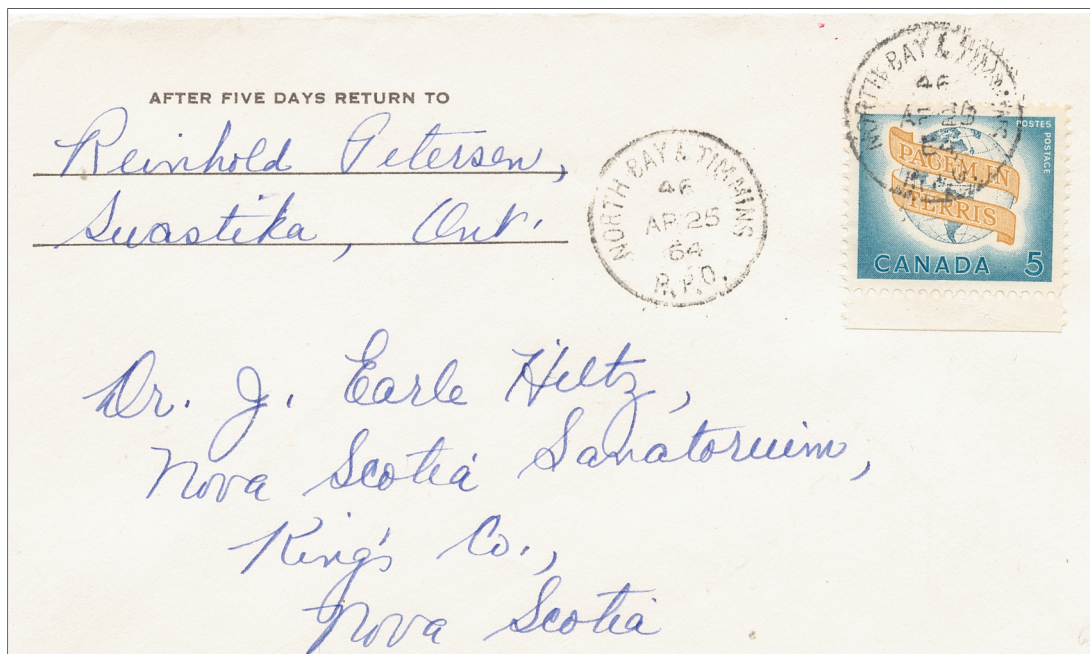 AFTER FIVE DAYS RETURN TO
Reinhold Petersen,
Swastika, Ont.
NORTH BAY & TIMMINS
46
AP 25
64
R.P.O.
NORTH BAY & TIMMINS
46
POSTES POSTAGE
PACEM IN
TERRIS
CANADA 5
Dr. J. Earle Hiltz,
Nova Scotia Sanatoruim,
King's Co.,
Nova Scotia